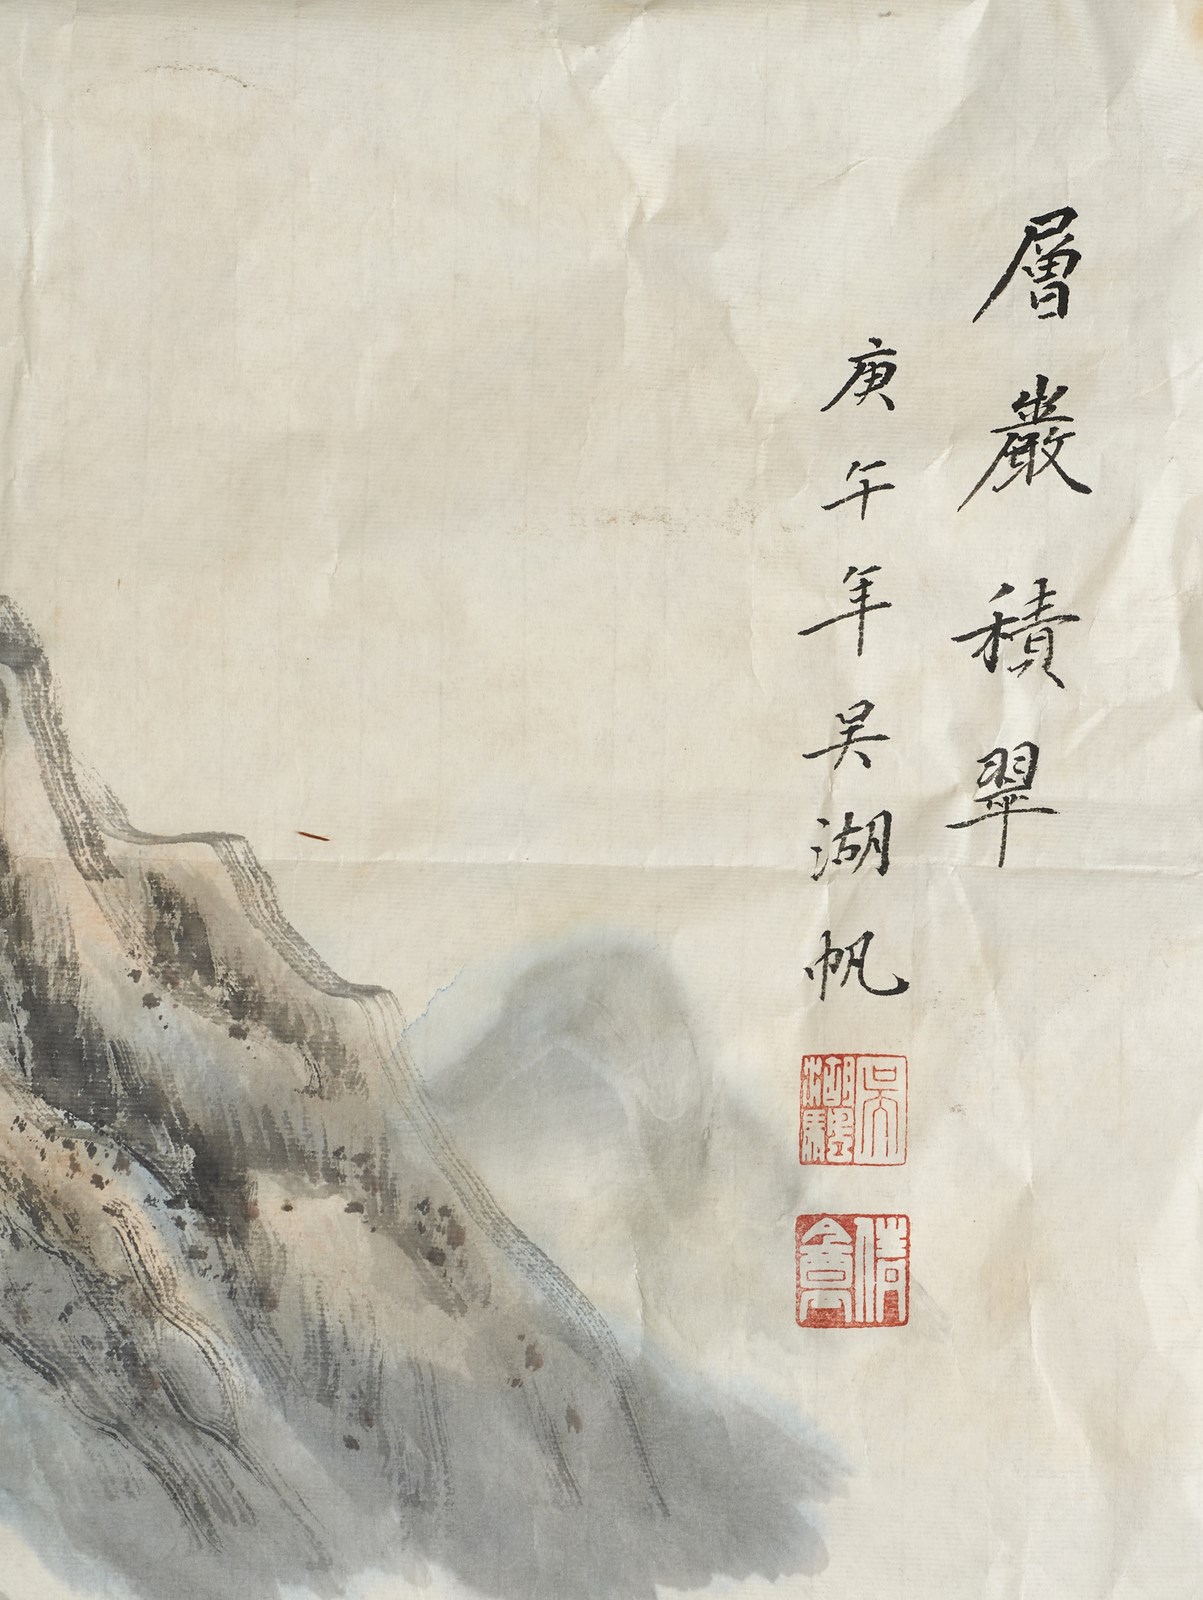 層巖積翠
庚午年吳湖帆
吳湖颿
倩盦